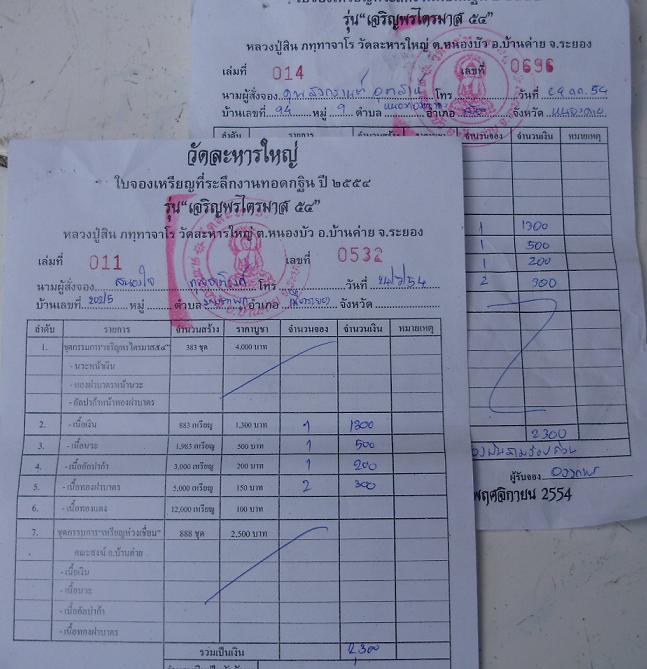 รุ่น"เจริญพรไตรมาส ๕๔"
หลวงปู่สิน ภทฺทาจาโร วัดละหารใหญ่ ต.หนองบัว อ.บ้านค่าย จ.ระยอง
เล่มที่ 014 เลขที่ 0696
นามผู้สั่งจอง โทร วันที่
บ้านเลขที่ 94 หมู่ 9 ตำบล อำเภอ จังหวัด
จำนวนจอง จำนวนเงิน หมายเหตุ
1 1300
1 500
1 200
2 300
2300
ผู้รับจอง
พฤศจิกายน 2554
วัดละหารใหญ่
ใบจองเหรียญที่ระลึกงานทอดกฐิน ปี ๒๕๕๔
รุ่น"เจริญพรไตรมาส ๕๔"
หลวงปู่สิน ภทฺทาจาโร วัดละหารใหญ่ ต.หนองบัว อ.บ้านค่าย จ.ระยอง
เล่มที่ 011 เลขที่ 0532
นามผู้สั่งจอง โทร วันที่
บ้านเลขที่ 202/5 หมู่ ตำบล อำเภอ จังหวัด
ลำดับ รายการ จำนวนสร้าง ราคาบูชา จำนวนจอง จำนวนเงิน หมายเหตุ
1. ชุดกรรมการ"เจริญพรไตรมาส๕๔" 383 ชุด 4,000 บาท
- นวะหน้าเงิน
- ทองฝาบาตรหน้านวะ
- อัลปาก้าหน้าทองฝาบาตร
2. - เนื้อเงิน 883 เหรียญ 1,300 บาท 1 1300
3. - เนื้อนวะ 1,983 เหรียญ 500 บาท 1 500
4. - เนื้ออัลปาก้า 3,000 เหรียญ 200 บาท 1 200
5. - เนื้อทองฝาบาตร 5,000 เหรียญ 150 บาท 2 300
6. - เนื้อทองแดง 12,000 เหรียญ 100 บาท
7. ชุดกรรมการ"เหรียญห่วงเชื่อม" 888 ชุด 2,500 บาท
คณะสงฆ์ อ.บ้านค่าย
- เนื้อเงิน
- เนื้อนวะ
- เนื้ออัลปาก้า
- เนื้อทองฝาบาตร
รวมเป็นเงิน 2,300